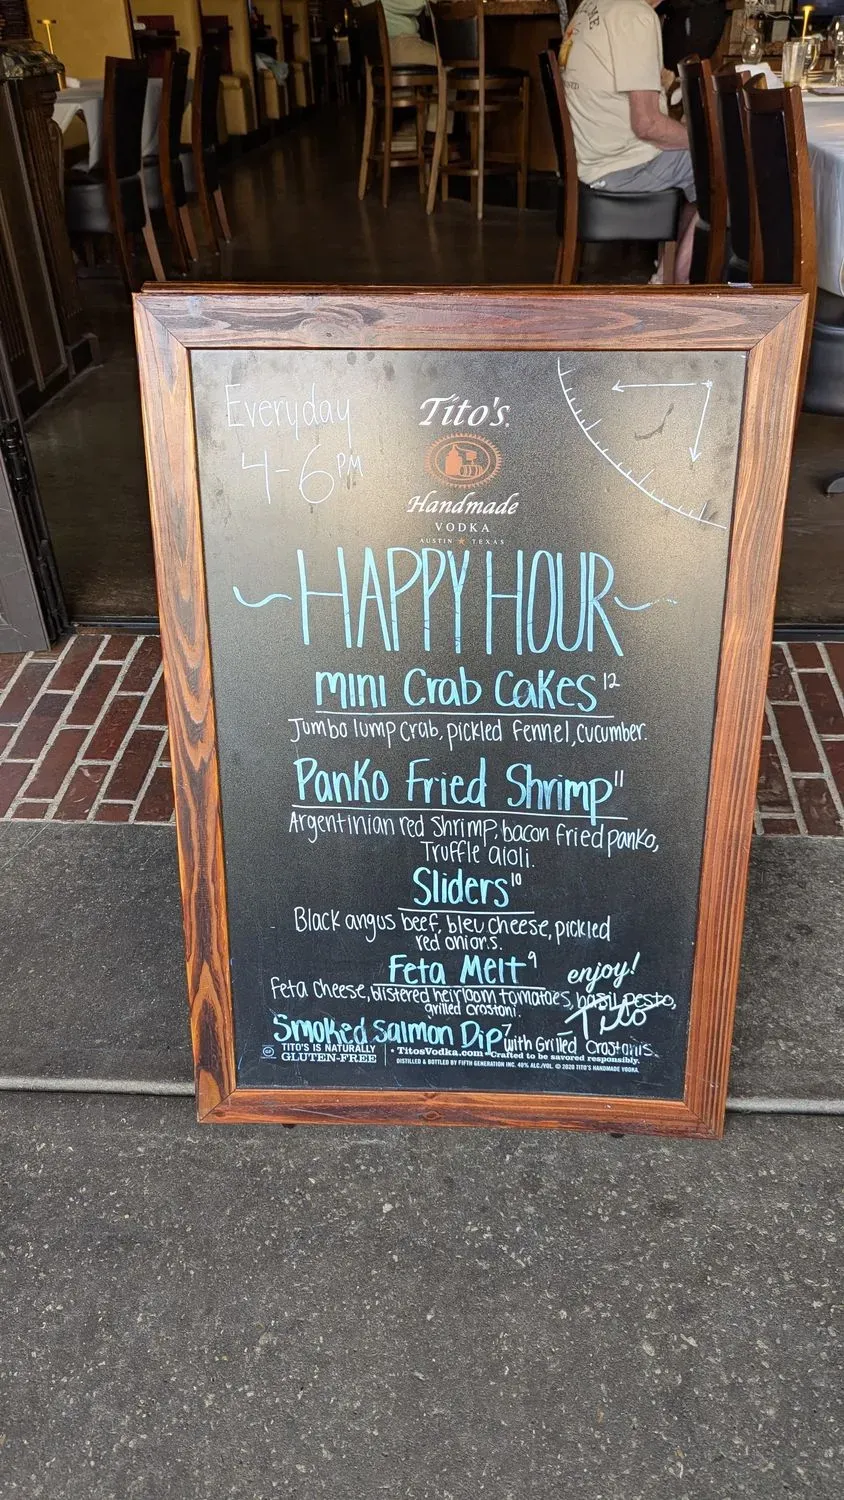 Everyday
4-6PM
Tito's
Handmade
VODKA
AUSTIN ★ TEXAS
~HAPPY HOUR~
mini Crab Cakes 12
Jumbo lump crab, pickled fennel, cucumber.
Panko Fried Shrimp 11
Argentinian red shrimp, bacon fried panko,
Truffle aioli.
Sliders 10
Black angus beef, bleu cheese, pickled
red onions.
Feta Melt 9
enjoy!
Feta cheese, blistered heirloom tomatoes, basil pesto,
grilled crostoni.
Tito
Smoked Salmon Dip 7 with Grilled Crostonis.
GF TITO'S IS NATURALLY
GLUTEN-FREE
• TitosVodka.com • Crafted to be savored responsibly.
DISTILLED & BOTTLED BY FIFTH GENERATION INC. 40% ALC./VOL. © 2020 TITO'S HANDMADE VODKA.